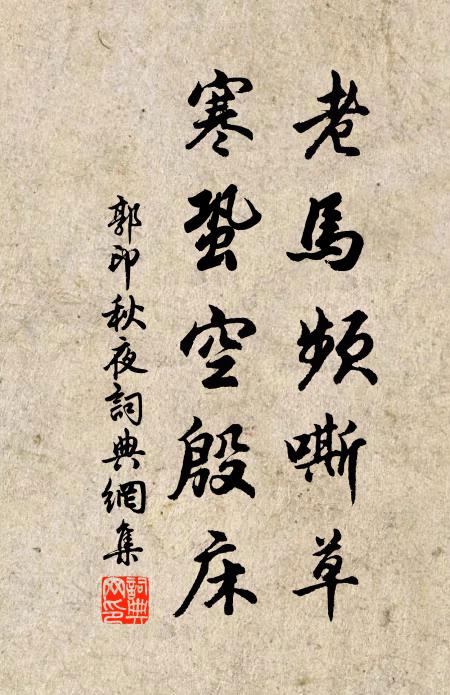 老馬頻嘶草
寒蛩空殷床
郭印秋夜詞典網集
詞典
网印